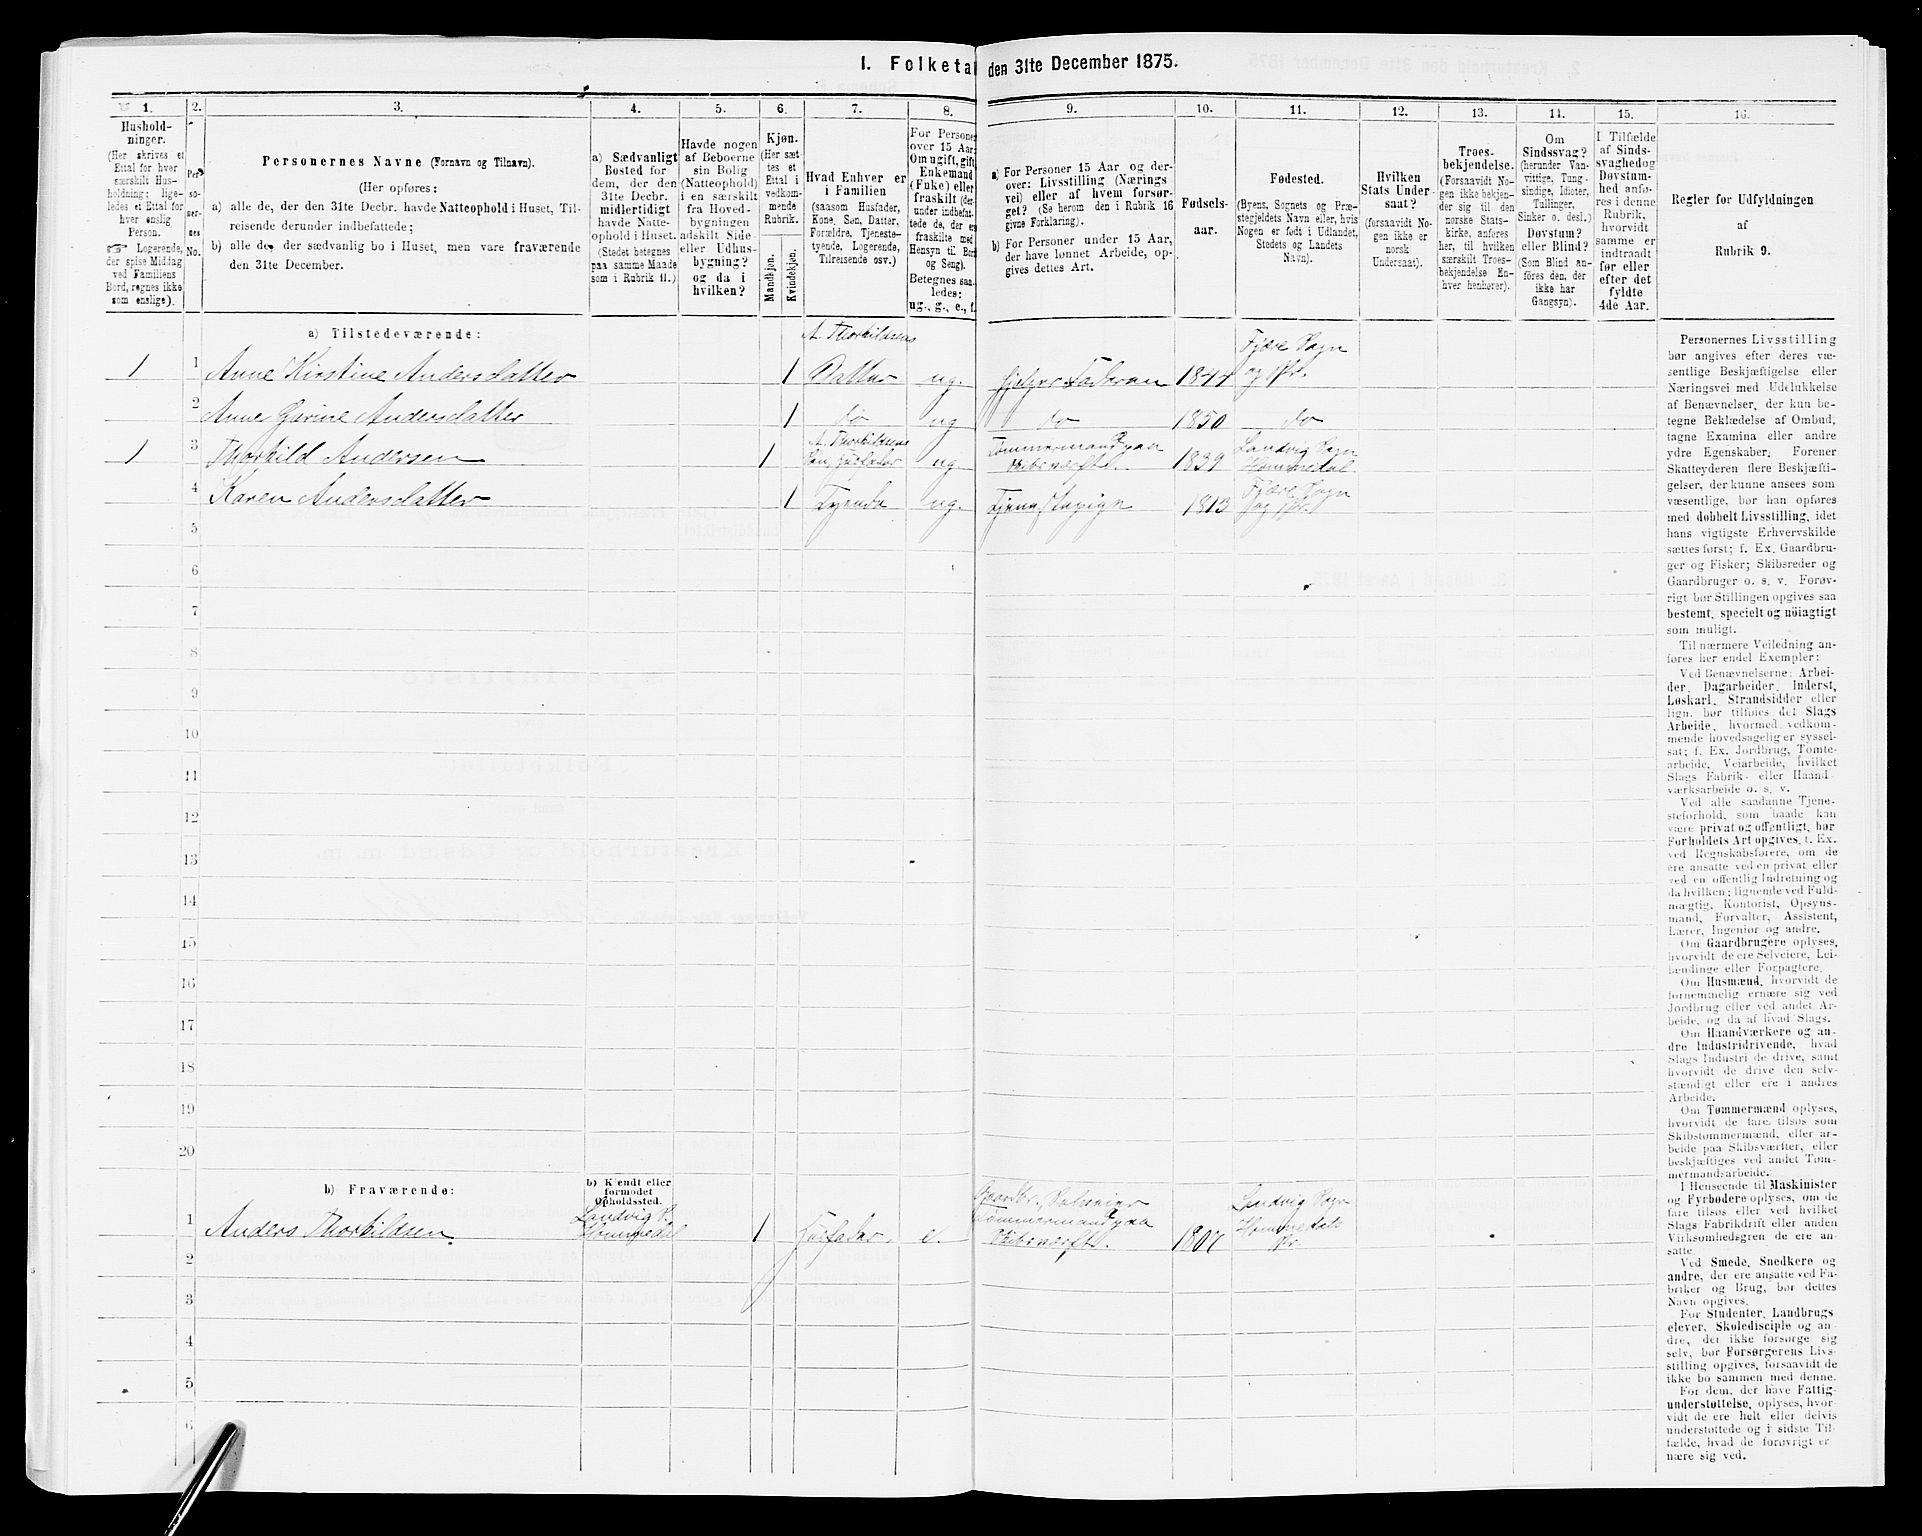 I. Folketal den 31te December 1875.
1. 2. 3. 4. 5. 6. 7. 8. 9. 10. 11. 12. 13. 14. 15. 16.
Hushold-
ninger.
(Her skrives et
Ettal for hver
særskilt Hus-
holdning; lige-
ledes et Ettal for
hver enslig
Person.
☞ Logerende,
der spise Middag
ved Familiens
Bord, regnes ikke
som enslige).
Per-
so-
ner-
nes
No.
Personernes Navne (Fornavn og Tilnavn).
(Her opføres:
a) alle de, der den 31te Decbr. havde Natteophold i Huset, Til-
reisende derunder indbefattede;
b) alle de, der sædvanlig bo i Huset, men vare fraværende
den 31te December.
a) Sædvanligt
Bosted for
dem, der den
31te Decbr.
midlertidigt
havde Natte-
ophold i Huset.
(Stedet betegnes
paa samme Maade
som i Rubrik 11.)
Havde nogen
af Beboerne
sin Bolig
(Natteophold)
i en særskilt
fra Hoved-
bygningen
adskilt Side-
eller Udhus-
bygning?
og da i
hvilken?
Kjøn.
(Her sæt-
tes et
Ettal i
vedkom-
mende
Rubrik.
Mandkjøn.
Kvindekjøn.
Hvad Enhver er
i Familien
(saasom Husfader,
Kone, Søn, Datter,
Forældre, Tjeneste-
tyende, Logerende,
Tilreisende osv.)
For Personer
over 15 Aar:
Om ugift, gift,
Enkemand
(Enke) eller
fraskilt (der-
under indbefat-
tede de, der ere
fraskilte med
Hensyn til Bord
og Seng).
Betegnes saa-
ledes:
ug., g., e., f.
a) For Personer 15 Aar og der-
over: Livsstilling (Nærings
vei) eller af hvem forsør-
get? (Se herom den i Rubrik 16
givne Forklaring).
b) For Personer under 15 Aar,
der have lønnet Arbeide, op-
gives dettes Art.
Fødsels-
aar.
Fødested.
(Byens, Sognets og Præ-
stegjeldets Navn eller, hvis
Nogen er født i Udlandet,
Stedets og Landets
Navn).
Hvilken
Stats Under-
saat?
(forsaavidt No-
gen ikke er
norsk
Undersaat).
Troes-
bekjendelse.
(Forsaavidt No-
gen ikke bekjen-
der sig til den
norske Stats-
kirke, anføres
her, til hvilken
særskilt Troes-
bekjendelse En-
hver henhører).
Om
Sindssvag?
(herunder Van-
vittige, Tung-
sindige, Idioter,
Tullinger,
Sinker o. desl.)
Døvstum?
eller Blind?
(Som Blind an-
føres den, der
ikke har
Gangsyn).
I Tilfælde
af Sinds-
svaghed og
Døvstum-
hed anfø-
res i denne
Rubrik,
hvorvidt
samme er
indtraadt
før eller
efter det
fyldte
4de Aar.
Regler for Udfyldningen
af
Rubrik 9.
a) Tilstedeværende:
1 1 Anne Kirstine Andersdatter 1 A. Thorkildsens Datter ug. hjelper Faderen 1844 Fjære Sogn og Pr.
2 Anne Gurine Andersdatter 1 do ug do 1850 do
1 3 Thorkild Andersen 1 A. Thorkildsens Søn, Husfader ug. Tømmermand paa Skibsværft. 1839 Landvig Sogn Hommedal
4 Karen Andersdatter 1 Tyende ug. Tjenestepige 1813 Fjære Sogn og Pr.
5
6
7
8
9
10
11
12
13
14
15
16
17
18
19
20
b) Fraværende:
b) Kjendt eller
formodet
Opholdssted.
1 Anders Thorkildsen. Landvig S. Hommedal 1 Husfader. e. Gaardbr., Selveier Tømmermand paa Skibsværft. 1807 Landvig Sogn Hommedals Pr.
2
3
4
5
6
Personernes Livsstilling
bør angives efter deres væ-
sentlige Beskjæftigelse eller
Næringsvei med Udelukkelse
af Benævnelser, der kun be-
tegne Beklædelse af Ombud,
tagne Examina eller andre
ydre Egenskaber. Forener
Skatteyderen flere Beskjæfti-
gelser, der kunne ansees som
væsentlige, bør han opføres
med dobbelt Livsstilling, idet
hans vigtigste Erhvervskilde
sættes først; f. Ex. Gaardbru-
ger og Fisker; Skibsreder og
Gaardbruger o. s. v. Forøv-
rigt bør Stillingen opgives saa
bestemt, specielt og nöiagtigt
som muligt.
Til nærmere Veiledning an-
føres her endel Exempler:
Ved Benævnelserne: Arbei-
der, Dagarbeider, Inderst,
Løskarl, Strandsidder eller
lign. bør tilføies det Slags
Arbeide, hvormed vedkom-
mende hovedsagelig er syssel-
sat; f. Ex. Jordbrug, Tomte-
arbeide, Veiarbeide, hvilket
Slags Fabrik- eller Haand-
værksarbeide o. s. v.
Ved alle saadanne Tjene-
steforhold, som baade kan
være privat og offentligt, bør
Forholdets Art opgives, f. Ex.
ved Regnskabsførere, om de
ere ansatte ved en privat eller
ved en offentlig Indretning og
da hvilken; lignende ved Fuld-
mægtig, Kontorist, Opsyns-
mand, Forvalter, Assistent,
Lærer, Ingeniør og andre.
Om Gaardbrugere oplyses,
hvorvidt de ere Selveiere, Lei-
lændinge eller Forpagtere.
Om Husmænd, hvorvidt de
fornemmelig ernære sig ved
Jordbrug eller ved andet Ar-
beide, og da af hvad Slags.
Om Haandværkere og an-
dre Industridrivende, hvad
Slags Industri de drive, samt
hvorvidt de drive den selv-
stændigt eller ere i andres
Arbeide.
Om Tømmermænd oplyses,
hvorvidt de fare tilsøs som
Skibstømmermænd, eller ar-
beide paa Skibsværfter, eller
beskjæftiges ved andet Tøm-
mermandsarbeide.
I Henseende til Maskinister
og Fyrbødere oplyses, om de
fare tilsøs eller ved hvilket
Slags Fabrikdrift eller anden
Virksomhedsgren de ere an-
satte.
Ved Smede, Snedkere og
andre, der ere ansatte ved Fa-
briker og Brug, bør dettes
Navn opgives.
For Studenter, Landbrugs
elever, Skoledisciple og an-
dre, der ikke forsørge sig
selv, bør Forsørgerens Livs-
stilling opgives, forsaavidt de
ikke bo sammen med denne.
For dem, der have Fattig-
understøttelse, oplyses, hvor-
vidt de ere helt eller delvis
understøttede og i sidste Til-
fælde, hvad de forøvrigt er-
nære sig ved.